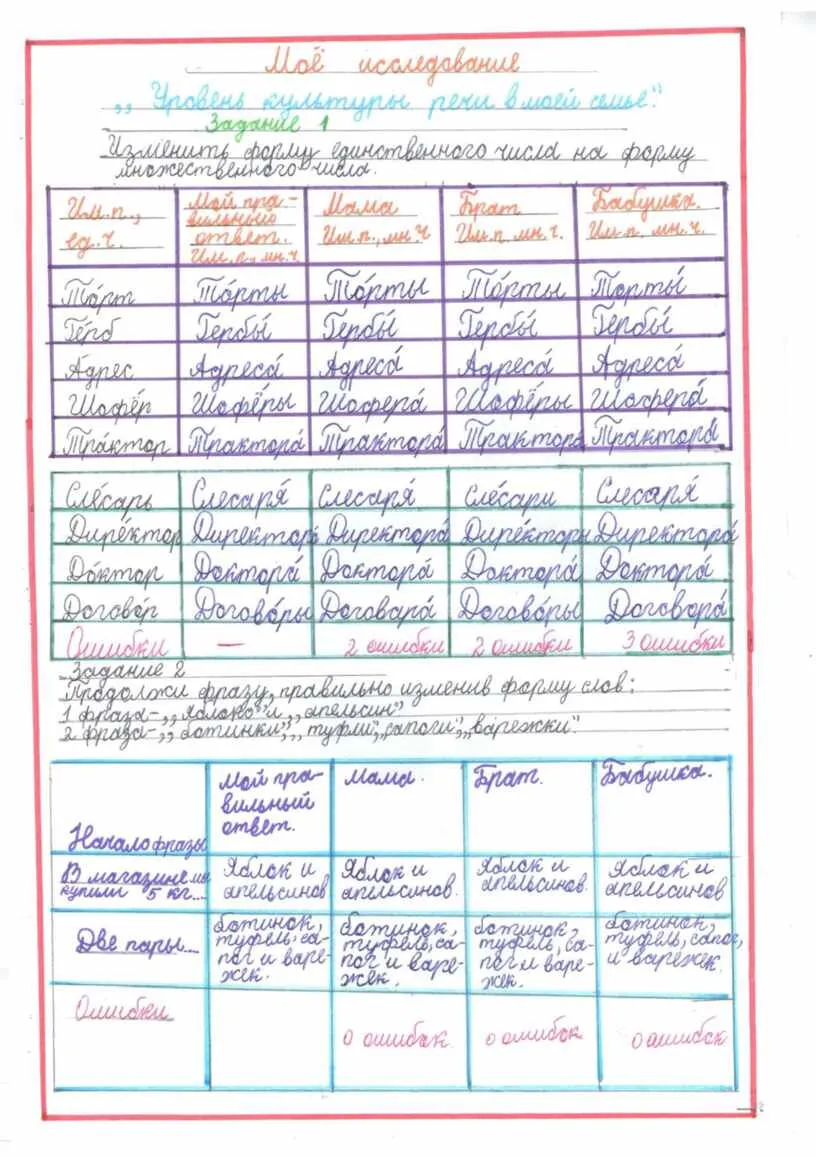 Моё исследование
„Уровень культуры речи в моей семье".
Задание 1
Изменить форму единственного числа на форму
множественного числа.
Им.п., ед.ч. Мой правильный ответ. Им.п., мн.ч Мама Им.п., мн.ч Брат Им.п. мн.ч. Бабушка. Им.п. мн.ч.
То́рт То́рты То́рты То́рты Торты́
Ге́рб Гербы́ Гербы́ Гербы́ Гербы́
А́дрес Адреса́ Адреса́ Адреса́ Адреса́
Шофёр Шофёры Шофера́ Шофёры Шофера́
Тра́ктор Трактора́ Трактора́ Трактора́ Трактора́
Сле́сарь Слесаря́ Слесаря́ Сле́сари Слесаря́
Дире́ктор Директора́ Директора́ Дире́кторы Директора́
До́ктор Доктора́ Доктора́ Доктора́ Доктора́
Догово́р Догово́ры Договара́ Догово́ры Договора́
Ошибки — 2 ошибки 2 ошибки 3 ошибки
Задание 2
Продолжи фразу, правильно изменив форму слов:
1 фраза-„яблоко" и „апельсин"
2 фраза-„ботинки", „туфли", „сапоги", „варежки".
Начало фразы Мой правильный ответ. Мама. Брат. Бабушка.
В магазине мы купили 5 кг... Яблок и апельсинов Яблок и апельсинов. Яблок и апельсинов. Яблок и апельсинов
Две пары.... ботинок, туфель, сапог и варежек. ботинок, туфель, сапог и варежек. ботинок, туфель, сапог и варежек. ботинок, туфель, сапог, и варежек.
Ошибки 0 ошибок 0 ошибок 0 ошибок